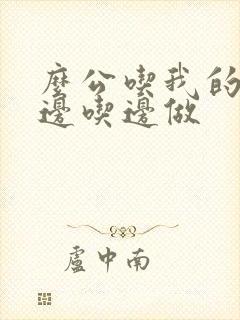 麼公喫我的
邊喫邊做
盧中南